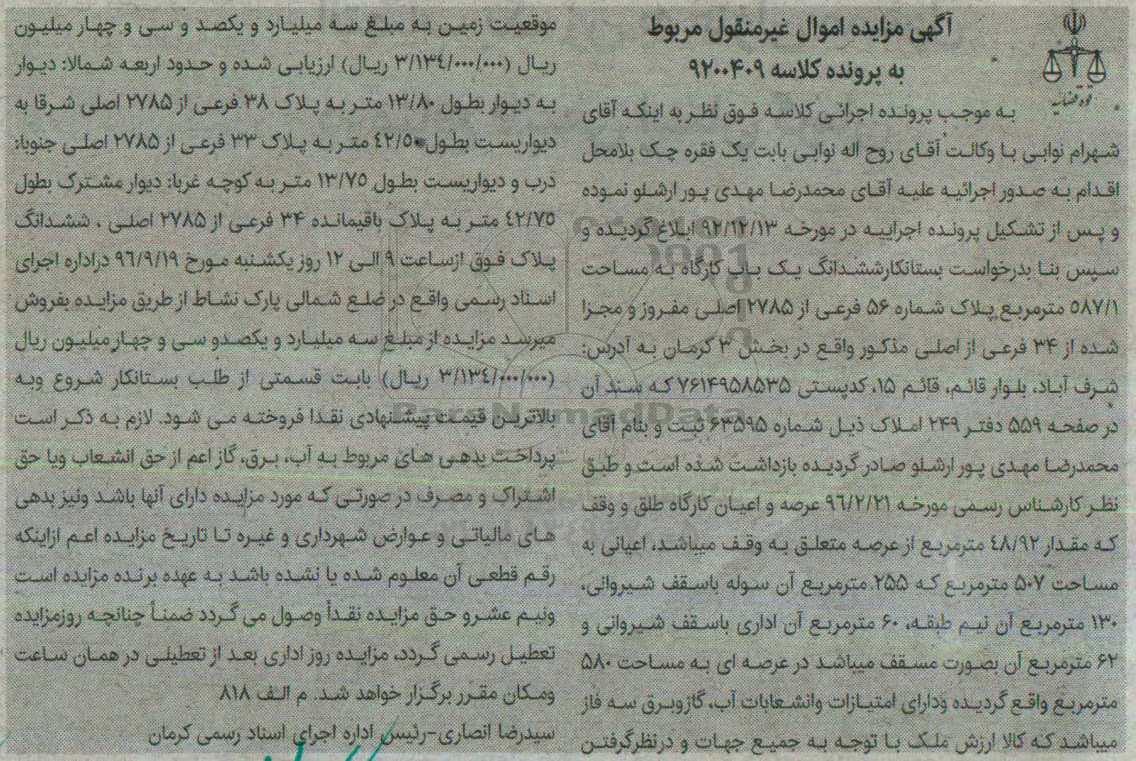 آگهی مزایده اموال غیرمنقول مربوط
به پرونده کلاسه ۹۲۰۰۴۰۹
قوه قضائیه
به موجب پرونده اجرائی کلاسه فوق نظر به اینکه آقای
شهرام نوابی با وکالت آقای روح اله نوابی بابت یک فقره چک بلامحل
اقدام به صدور اجرائیه علیه آقای محمدرضا مهدی پور ارشلو نموده
و پس از تشکیل پرونده اجراییه در مورخه ۹۲/۱۲/۱۳ ابلاغ گردیده و
سپس بنا بدرخواست بستانکارششدانگ یک باب کارگاه به مساحت
۵۸۷/۱ مترمربع پلاک شماره ۵۶ فرعی از ۲۷۸۵ اصلی مفروز و مجزا
شده از ۳۴ فرعی از اصلی مذکور واقع در بخش ۳ کرمان به آدرس:
شرف آباد، بلوار قائم، قائم ۱۵، کدپستی ۷۶۱۴۹۵۸۵۳۵ که سند آن
در صفحه ۵۵۹ دفتر ۲۴۹ املاک ذیل شماره ۶۳۵۹۵ ثبت و بنام آقای
محمدرضا مهدی پور ارشلو صادر گردیده بازداشت شده است و طبق
نظر کارشناس رسمی مورخه ۹۶/۲/۲۱ عرصه و اعیان کارگاه طلق و وقف
که مقدار ۴۸/۹۲ مترمربع از عرصه متعلق به وقف میباشد، اعیانی به
مساحت ۵۰۷ مترمربع که ۲۵۵ مترمربع آن سوله باسقف شیروانی،
۱۳۰ مترمربع آن نیم طبقه، ۶۰ مترمربع آن اداری باسقف شیروانی و
۶۲ مترمربع آن بصورت مسقف میباشد در عرصه ای به مساحت ۵۸۰
مترمربع واقع گردیده ودارای امتیازات وانشعابات آب، گازوبرق سه فاز
میباشد که کالا ارزش ملک با توجه به جمیع جهات و درنظرگرفتن
موقعیت زمین به مبلغ سه میلیارد و یکصد و سی و چهار میلیون
ریال (۳/۱۳۴/۰۰۰/۰۰۰ ریال) ارزیابی شده و حدود اربعه شمالا: دیوار
به دیوار بطول ۱۳/۸۰ متر به پلاک ۳۸ فرعی از ۲۷۸۵ اصلی شرقا به
دیواریست بطول ۴۲/۵۰ متر به پلاک ۳۳ فرعی از ۲۷۸۵ اصلی جنوبا:
درب و دیواریست بطول ۱۳/۷۵ متر به کوچه غربا: دیوار مشترک بطول
۴۲/۷۵ متر به پلاک باقیمانده ۳۴ فرعی از ۲۷۸۵ اصلی ، ششدانگ
پلاک فوق ازساعت ۹ الی ۱۲ روز یکشنبه مورخ ۹۶/۹/۱۹ دراداره اجرای
اسناد رسمی واقع در ضلع شمالی پارک نشاط از طریق مزایده بفروش
میرسد مزایده از مبلغ سه میلیارد و یکصدو سی و چهار میلیون ریال
(۳/۱۳۴/۰۰۰/۰۰۰ ریال) بابت قسمتی از طلب بستانکار شروع وبه
بالاترین قیمت پیشنهادی نقدا فروخته می شود. لازم به ذکر است
پرداخت بدهی های مربوط به آب، برق، گاز اعم از حق انشعاب ویا حق
اشتراک و مصرف در صورتی که مورد مزایده دارای آنها باشد ونیز بدهی
های مالیاتی و عوارض شهرداری و غیره تا تاریخ مزایده اعم ازاینکه
رقم قطعی آن معلوم شده یا نشده باشد به عهده برنده مزایده است
ونیم عشرو حق مزایده نقداً وصول می گردد ضمناً چنانچه روزمزایده
تعطیل رسمی گردد، مزایده روز اداری بعد از تعطیلی در همان ساعت
ومکان مقرر برگزار خواهد شد. م الف ۸۱۸
سیدرضا انصاری-رئیس اداره اجرای اسناد رسمی کرمان
ParsNamadData